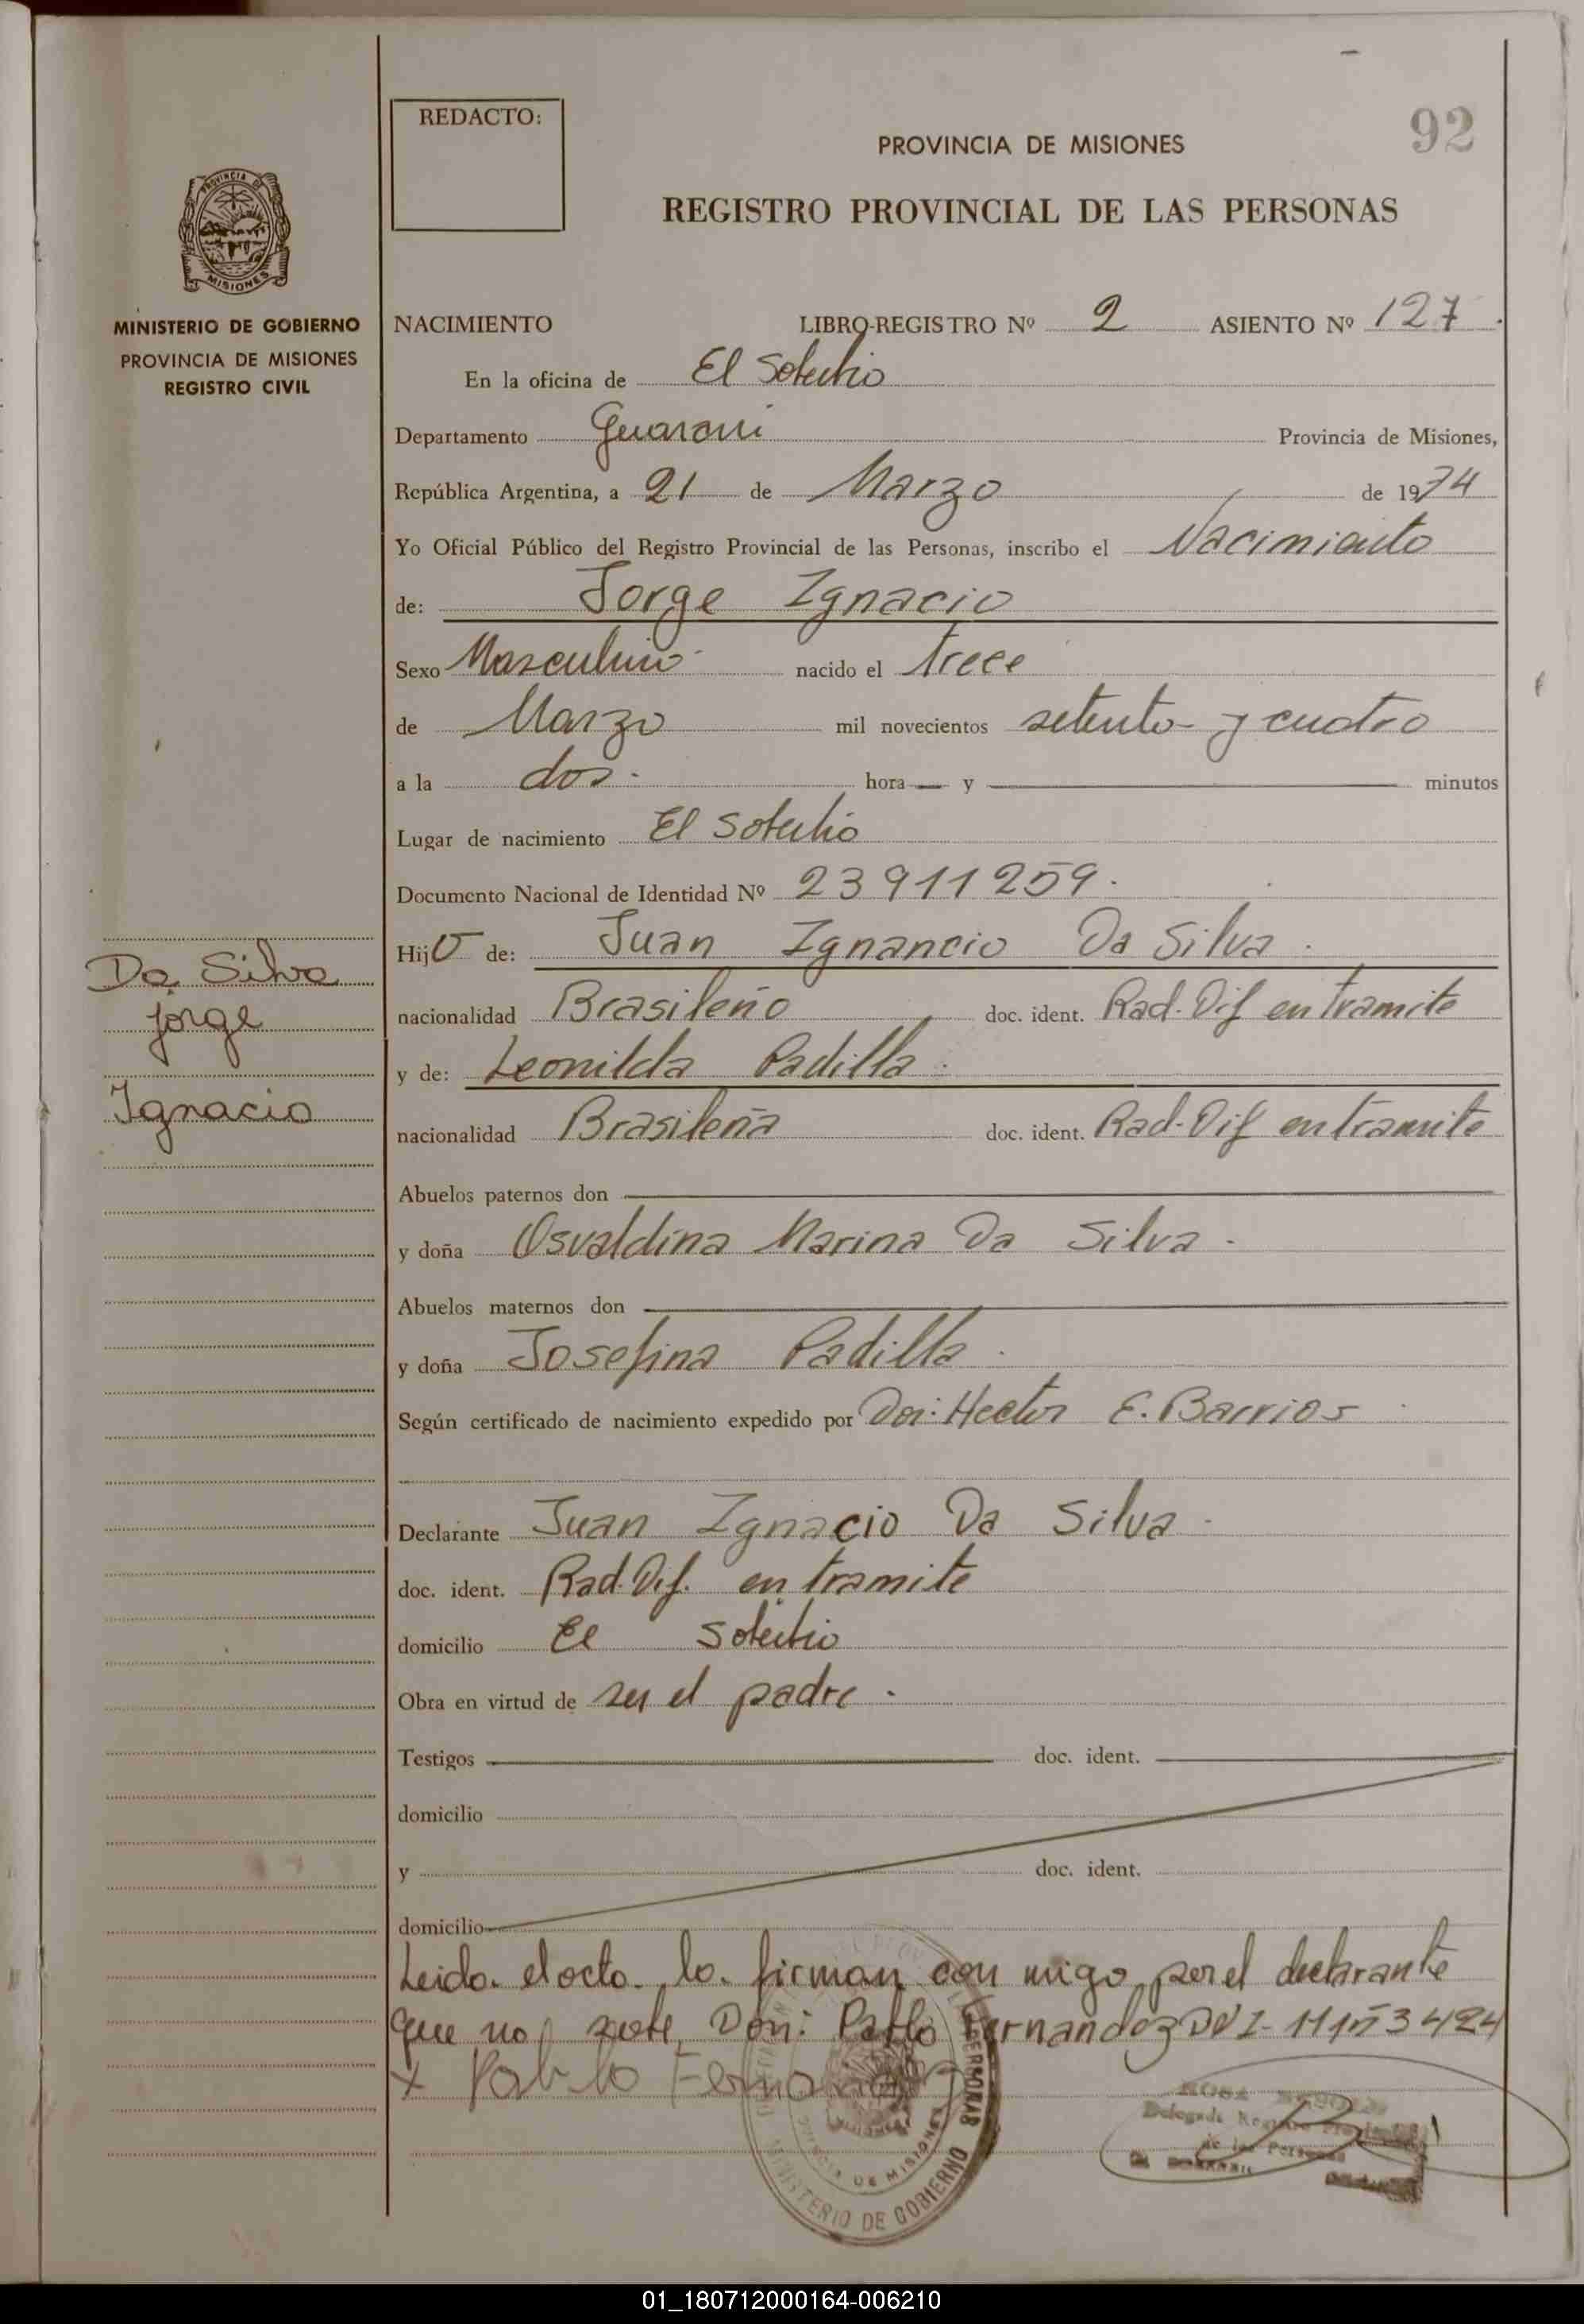 REDACTO:
92
PROVINCIA DE MISIONES
REGISTRO PROVINCIAL DE LAS PERSONAS
PROVINCIA DE
MISIONES
MINISTERIO DE GOBIERNO
PROVINCIA DE MISIONES
REGISTRO CIVIL
NACIMIENTO LIBRO-REGISTRO Nº 2 ASIENTO Nº 127
En la oficina de El Soberbio
Departamento Guarani Provincia de Misiones,
República Argentina, a 21 de Marzo de 1974
Yo Oficial Público del Registro Provincial de las Personas, inscribo el Nacimiento
de: Jorge Ignacio
Sexo Masculino nacido el trece
de Marzo mil novecientos setenta y cuatro
a la dos. hora — y — minutos
Lugar de nacimiento El Soberbio
Documento Nacional de Identidad Nº 23911259.
Hijo de: Juan Ignancio Da Silva.
Da Silva
Jorge
Ignacio
nacionalidad Brasileño doc. ident. Rad. Dif en tramite
y de: Leonilda Padilla.
nacionalidad Brasileña doc. ident. Rad. Dif en tramite
Abuelos paternos don —
y doña Osvaldina Marina Da Silva.
Abuelos maternos don —
y doña Josefina Padilla.
Según certificado de nacimiento expedido por Don: Hector E. Barrios
Declarante Juan Ignacio Da Silva
doc. ident. Rad. Dif. en tramite
domicilio El Soberbio
Obra en virtud de ser el padre.
Testigos — doc. ident. —
domicilio
y doc. ident.
domicilio
Leido el acto lo firman con migo por el declarante
que no sabe Don: Pablo Fernandez DNI- 11153424
x Pablo Fernandez
PERSONAS
PROVINCIA DE MISIONES
MINISTERIO DE GOBIERNO
Delegada Registro
de las Personas
01_180712000164-006210